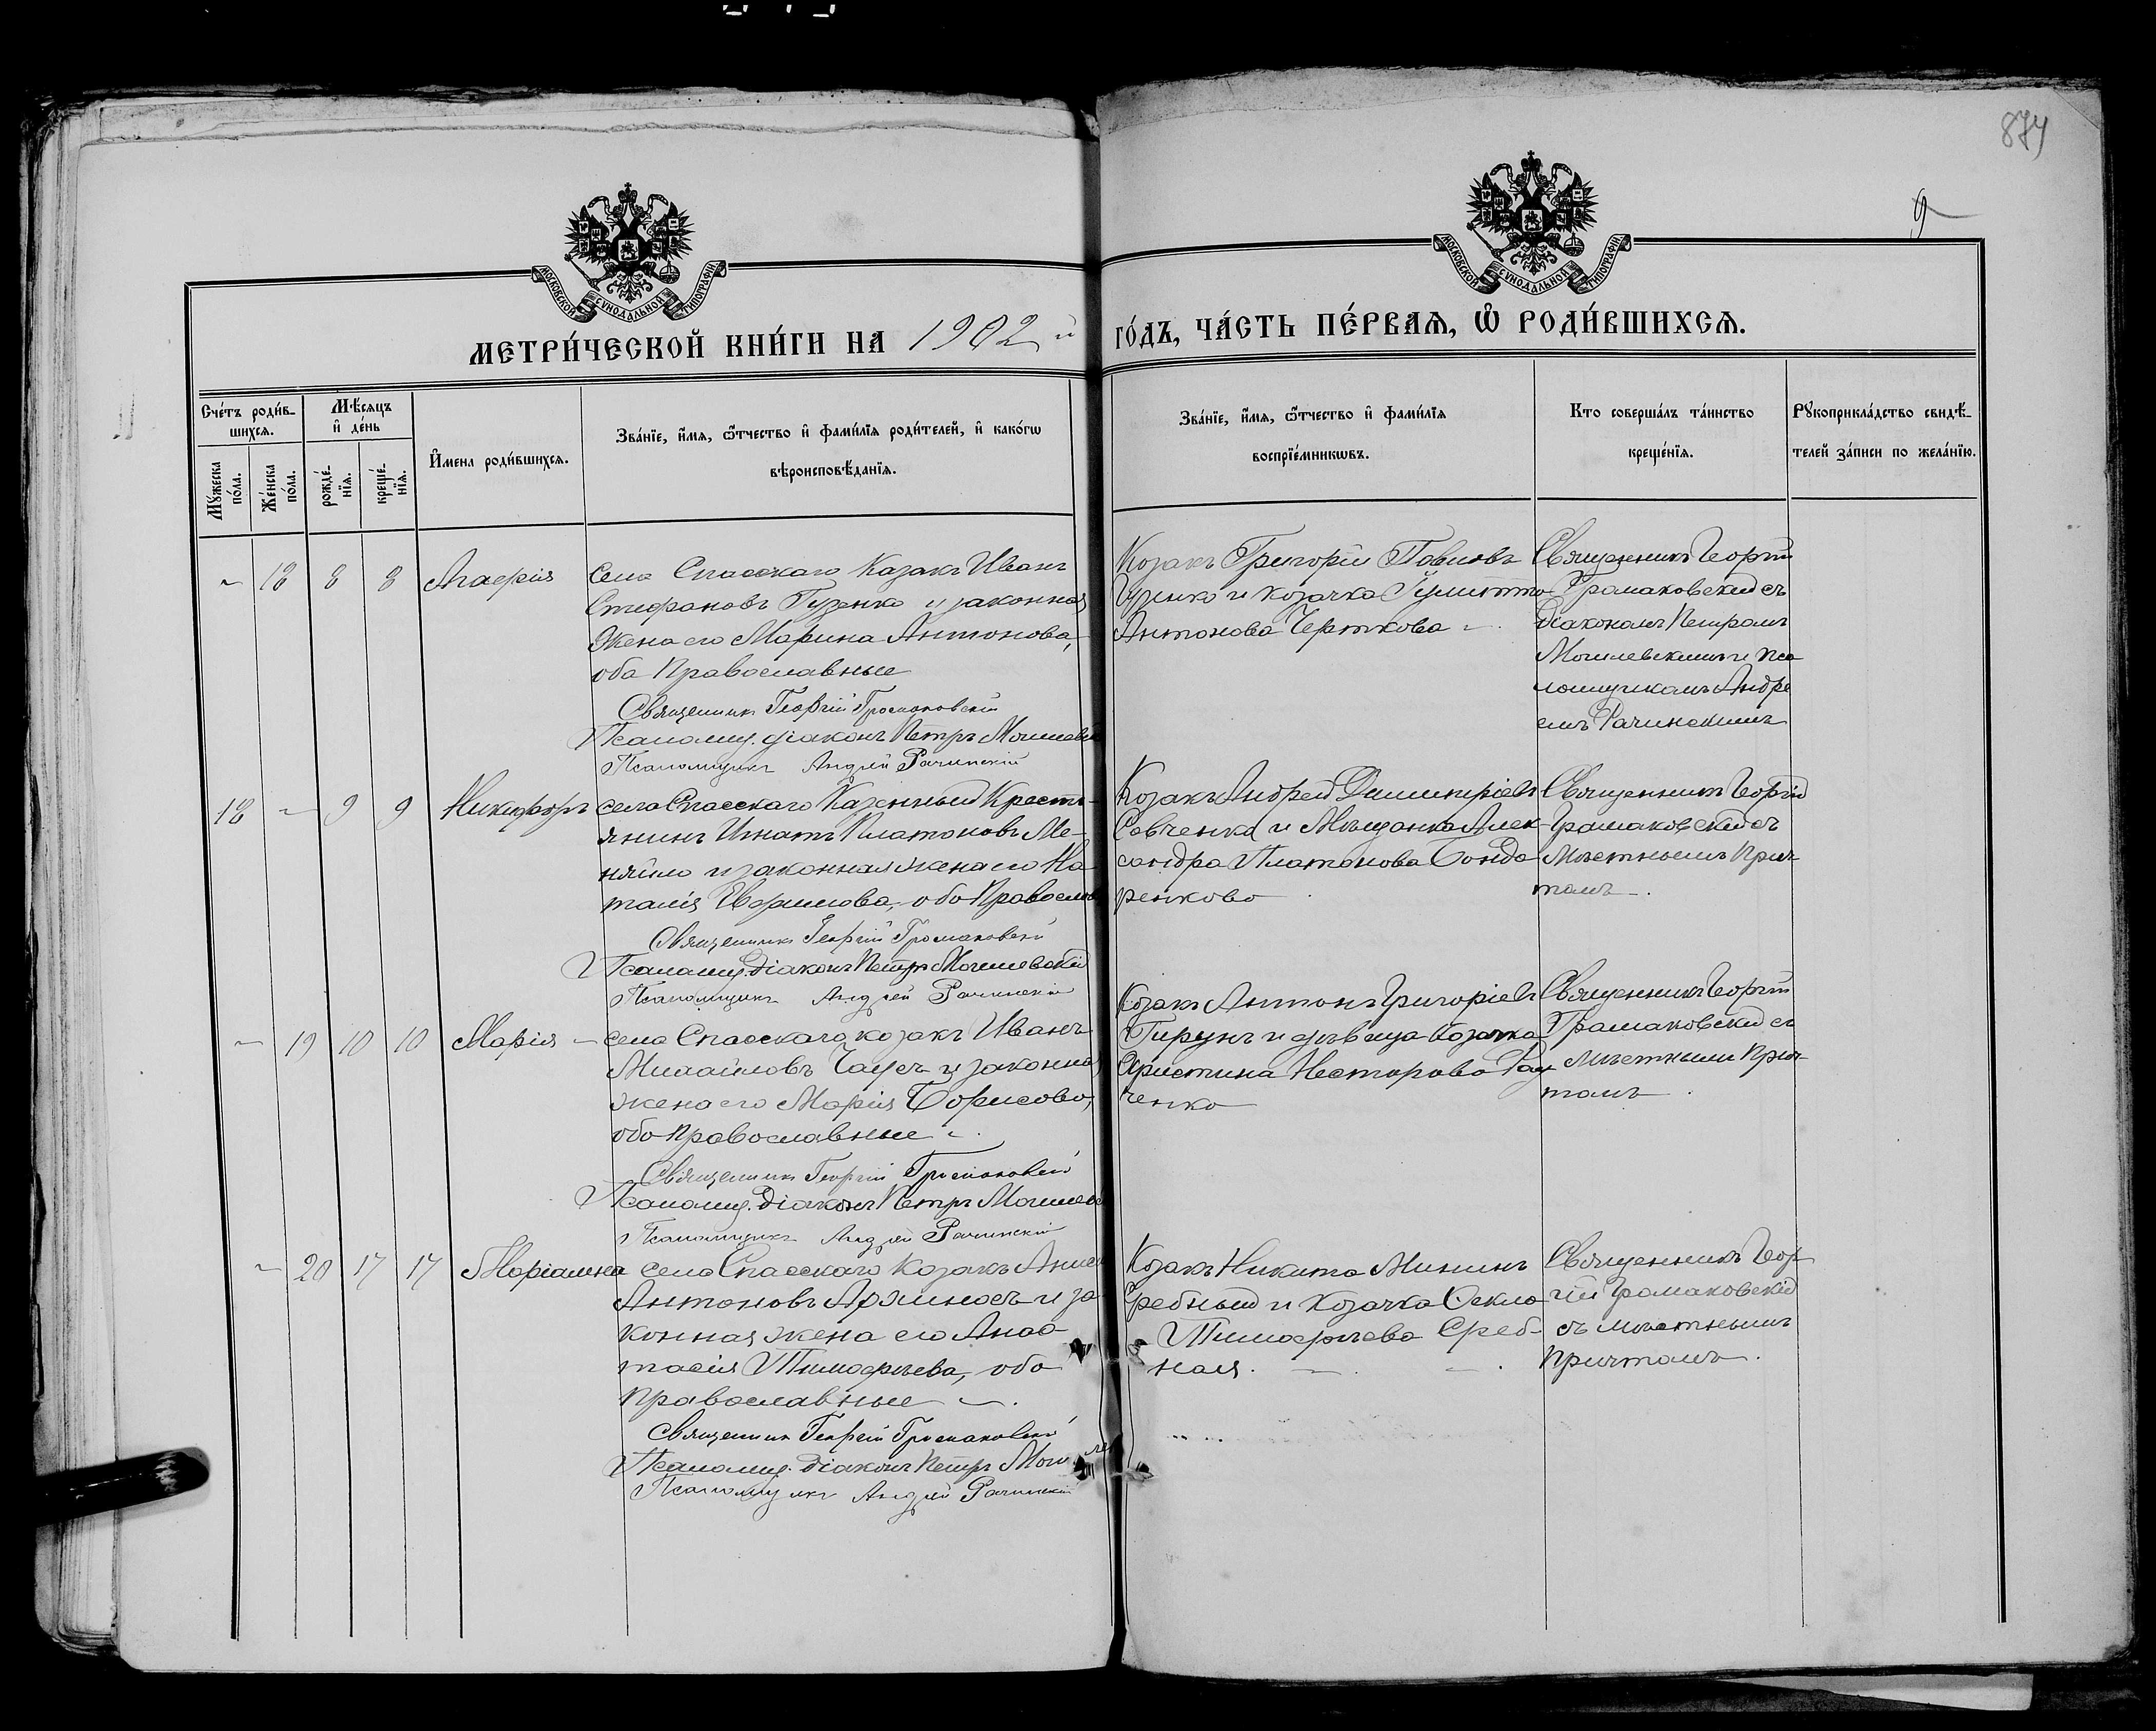 874
9
МОСКОВСКОЙ СУНОДАЛЬНОЙ ТИПОГРАФІИ.
МОСКОВСКОЙ СУНОДАЛЬНОЙ ТИПОГРАФІИ.
МЕТРИ́ЧЕСКОЙ КНИ́ГИ НА 1902 й
ГО́ДЪ, ЧА́СТЬ ПЕ́РВАѦ, Ѽ РОДИ́ВШИХСѦ.
Сче́тъ роди́в-
шихсѧ.
Мѣ́сѧцъ
и҆ де́нь
Мꙋ́жеска
по́ла.
Же́нска
по́ла.
рожде́-
нїѧ.
креще́-
нїѧ.
И҆мена̀ роди́вшихсѧ.
Зва́нїе, и҆́мѧ, ѻ҆́тчество и҆ фами́лїѧ роди́телей, и҆ како́гѡ
вѣроисповѣ́данїѧ.
Зва́нїе, и҆́мѧ, ѻ҆́тчество и҆ фами́лїѧ
воспрїе́мникѡвъ.
Кто соверша́лъ та́инство
креще́нїѧ.
Рꙋкоприкла́дство свидѣ́-
телей за́писи по жела́нїю.
18 8 8 Агафія
Села Спасскаго Казакъ Иванъ
Стефановъ Гузенко и законная
жена его Марина Антонова,
оба Православные
Священникъ Георгій Громаковскій
Псаломщ. діаконъ Петръ
Псаломщикъ Андрей Рачинскій
Козакъ Григорій Павловъ
и козачка
Антонова Черткова
Священникъ Георгій
Громаковскій съ
діакономъ Петромъ
Могилевскимъ и пса
ломщикомъ Андре
емъ Рачинскимъ
18 - 9 9 Никифоръ
села Спасскаго Казенный Кресть-
янинъ Игнатъ Платоновъ Ме-
няйло и законная жена его На-
талія оба Православ
Священникъ Георгій Громаковскій
Псаломщ. Діаконъ Петръ Могилевскій
Псаломщикъ Андрей Рачинскій
Козакъ Андрей Димитріевъ
Савченко и Мѣщанка Алек-
сандра Платонова Бонда-
ренкова
Священникъ Георгій
Громаковскій съ
Мѣстнымъ Прич-
томъ.
- 19 10 10 Марія
села Спасскаго козакъ Иванъ
Михайловъ и законная
жена его Марія Борисова,
оба православные
Священникъ Георгій Громаковскій
Псаломщ. Діаконъ Петръ
Псаломщикъ Андрей Рачинскій
Козакъ Антонъ Григоріевъ
и дѣвица Козачка
Христина Несторова
ченко
Священникъ Георгій
Громаковскій съ
Мѣстнымъ Прич-
томъ.
- 20 17 17 Маріамна
села Спасскаго Козакъ
Антоновъ и за
конная жена его Анас
тасія Тимофѣева, оба
православные
Священникъ Георгій Громаковскій
Псаломщ. Діаконъ Петръ
Псаломщикъ Андрей Рачинскій
Козакъ Никита Мининъ
и Козачка Ѳекла
Тимофѣева Греб-
ная.
Священникъ Геор-
гій Громаковскій
съ мѣстнымъ
Причтомъ.